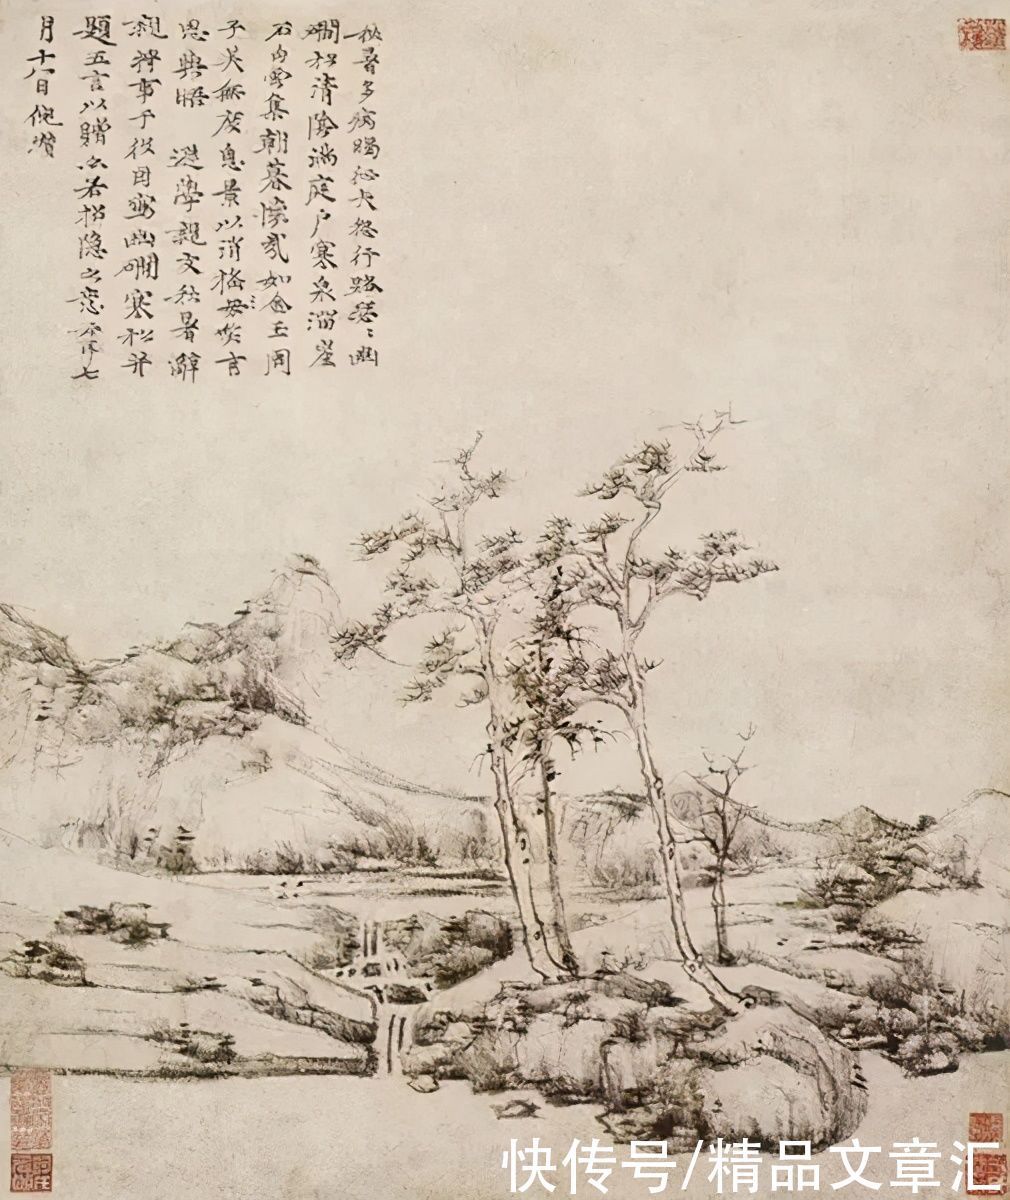 秋暑多病暍征夫怨行路瑟〻幽
磵松清陰滿庭户寒泉溜崖
石白雲集朝暮懷哉如金玉周
子美無度息景以消搖笑言
思與晤 遜學親友秋暑辭
親將事于役因寫幽磵寒松并
題五言以贈亦若招隱之意云耳七
月十八日倪瓚
快传号/精品文章汇